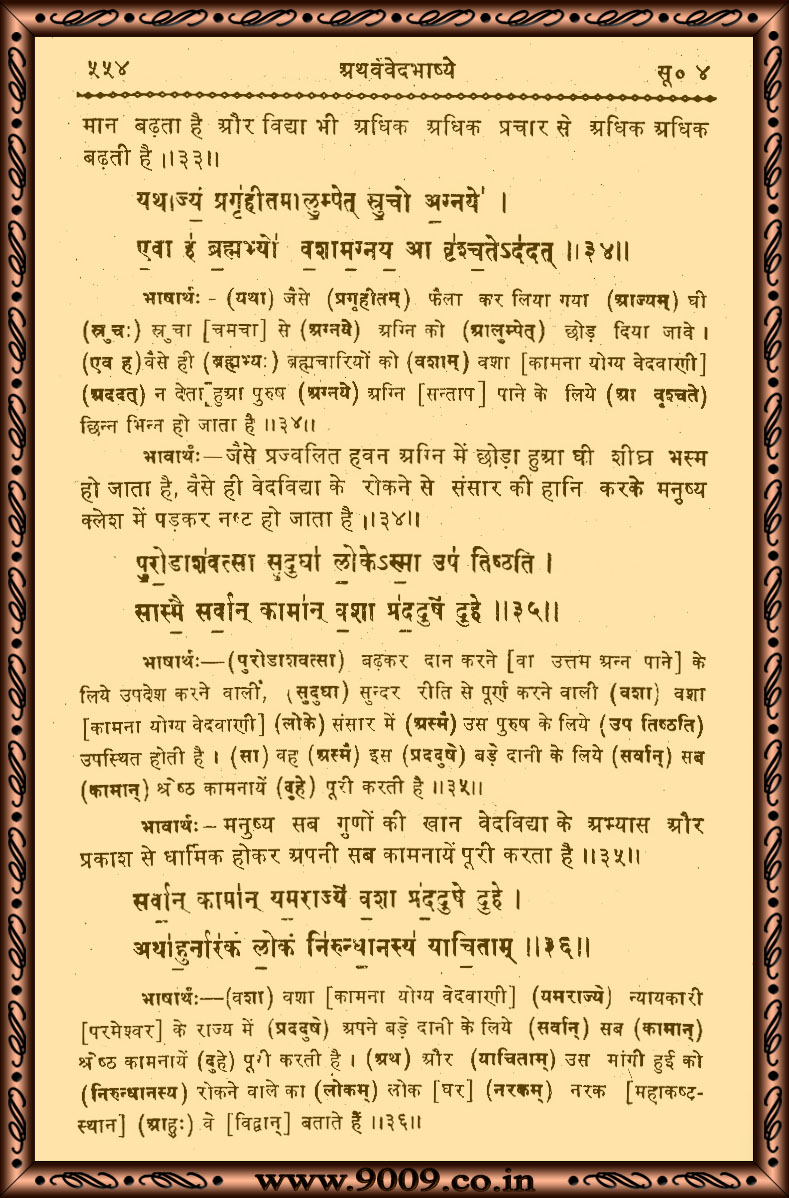 ५५४ अथर्ववेदभाष्ये सू० ४
मान बढ़ता है और विद्या भी अधिक अधिक प्रचार से अधिक अधिक
बढ़ती है ॥३३॥
यथाज्यं प्रगृ॑हीतमालु॒म्पेत् स्रु॒चो अ॒ग्नये॑ ।
ए॒वा ह॑ ब्र॒ह्मभ्यो॑ व॒शाम॒ग्नय॒ आ वृ॑श्च॒तेऽद॑दत् ॥३४॥
भाषार्थः - (यथा) जैसे (प्रगृहीतम्) फैला कर लिया गया (आज्यम्) घी
(स्रुचः) स्रुचा [चमचा] से (अग्नये) अग्नि को (आलुम्पेत्) छोड़ दिया जावे ।
(एव ह) वैसे ही (ब्रह्मभ्यः) ब्रह्मचारियों को (वशाम्) वशा [कामना योग्य वेदवाणी]
(अददत्) न देता हुआ पुरुष (अग्नये) अग्नि [सन्ताप] पाने के लिये (आ वृश्चते)
छिन्न भिन्न हो जाता है ॥३४॥
भावार्थः—जैसे प्रज्वलित हवन अग्नि में छोड़ा हुआ घी शीघ्र भस्म
हो जाता है, वैसे ही वेदविद्या के रोकने से संसार की हानि करके मनुष्य
क्लेश में पड़कर नष्ट हो जाता है ॥३४॥
पु॒रो॒डाश॑वत्सा सु॒दुघा॑ लो॒केऽस्मा॒ उप॑ तिष्ठति ।
सास्मै॒ सर्वा॒न् कामा॑न् व॒शा प्र॑द॒दुषे॑ दुहे ॥३५॥
भाषार्थः—(पुरोडाशवत्सा) बढ़कर दान करने [वा उत्तम अन्न पाने] के
लिये उपदेश करने वाली, (सुदुघा) सुन्दर रीति से पूर्ण करने वाली (वशा) वशा
[कामना योग्य वेदवाणी] (लोके) संसार में (अस्मै) उस पुरुष के लिये (उप तिष्ठति)
उपस्थित होती है । (सा) वह (अस्मै) इस (प्रददुषे) बड़े दानी के लिये (सर्वान्) सब
(कामान्) श्रेष्ठ कामनायें (दुहे) पूरी करती है ॥३५॥
भावार्थः—मनुष्य सब गुणों की खान वेदविद्या के अभ्यास और
प्रकाश से धार्मिक होकर अपनी सब कामनायें पूरी करता है ॥३५॥
सर्वा॒न् कामा॑न् यम॒राज्ये॑ व॒शा प्र॑द॒दुषे॑ दुहे ।
अथा॑हु॒र्नार॑कं लो॒कं नि॑रुन्धा॒नस्य॑ याचि॒ताम् ॥३६॥
भाषार्थः—(वशा) वशा [कामना योग्य वेदवाणी] (यमराज्ये) न्यायकारी
[परमेश्वर] के राज्य में (प्रददुषे) अपने बड़े दानी के लिये (सर्वान्) सब (कामान्)
श्रेष्ठ कामनायें (दुहे) पूरी करती है । (अथ) और (याचिताम्) उस मांगी हुई को
(निरुन्धानस्य) रोकने वाले का (लोकम्) लोक [घर] (नरकम्) नरक [महाकष्ट-
स्थान] (आहुः) वे [विद्वान्] बताते हैं ॥३६॥
www.9009.co.in